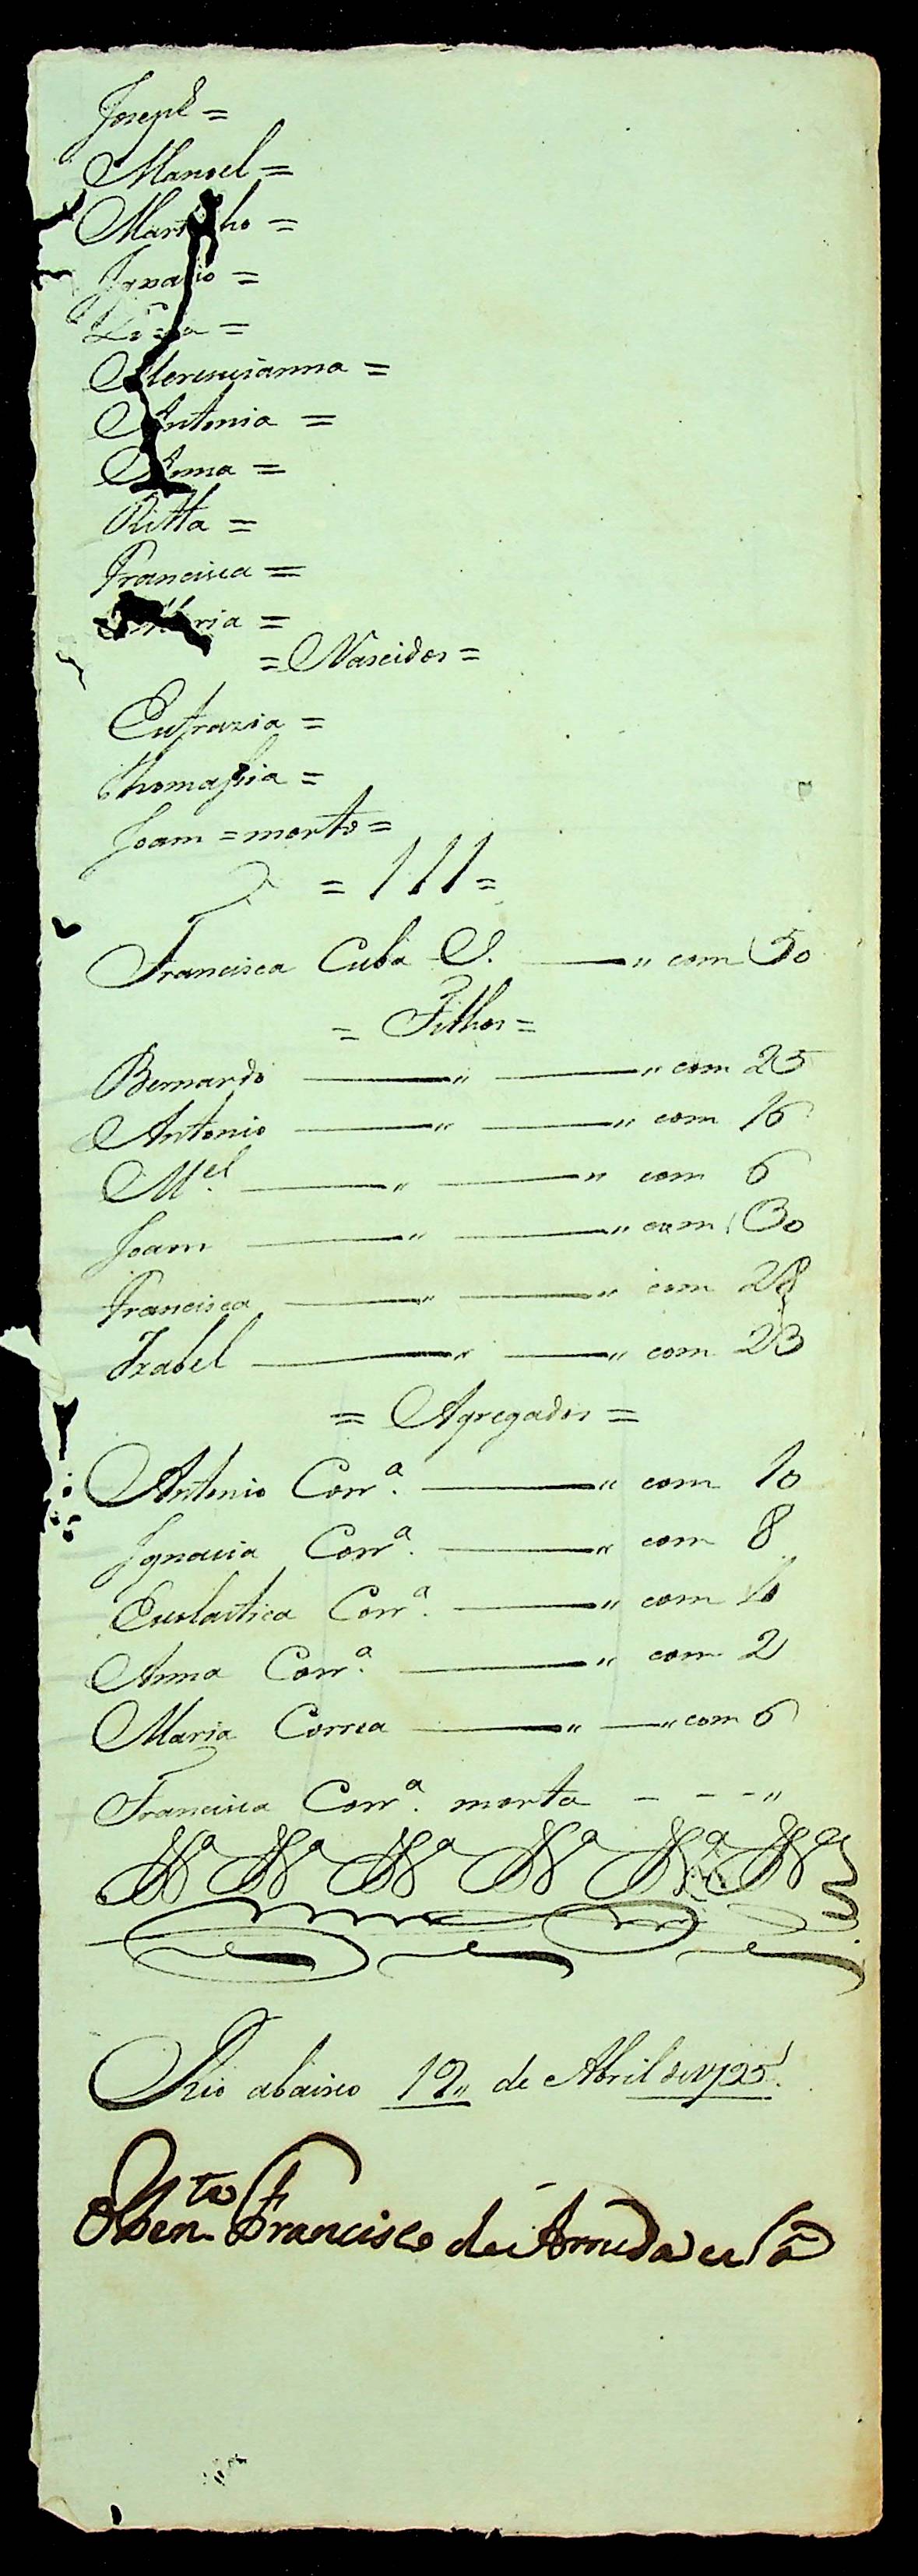 Joseph =
Manoel =
Mart ho =
Ignacio =
=
Merencianna =
Antonia =
Anna =
Ritta =
Francisca =
ria =
= Nascidos =
Eufrazia =
Thomassia =
Joam = morto =
= 111 =
Francisca Cuba S. ——— " com 50
= Filhos =
Bernardo ——— " ——— " com 25
Antonio ——— " ——— " com 16
M.el ——— " ——— " com 6
Joam ——— " ——— " com 30
Francisca ——— " ——— " com 28
Izabel ——— " ——— " com 23
= Agregados =
Antonio Corr.a ——— " com 10
Ignacia Corr.a ——— " com 8
Escolastica Corr.a ——— " com
Anna Corr.a ——— " com 2
Maria Correa ——— " — " com 6
Francisca Corr.a morta - - - "
Rio abaixo 12,, de Abril de
Francisco de Arruda e Sá